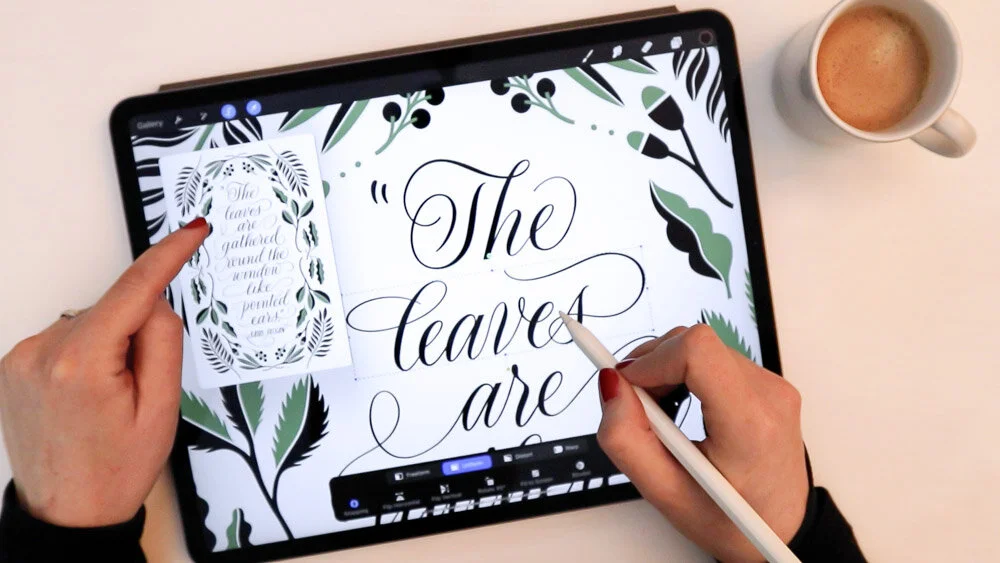 Gallery
"The
leaves
are
gathered
round the
window
like
pointed
ears.
"The
leaves
are
Freeform Uniform Distort Warp
Snapping Flip Horizontal Flip Vertical Rotate 45° Fit to Screen